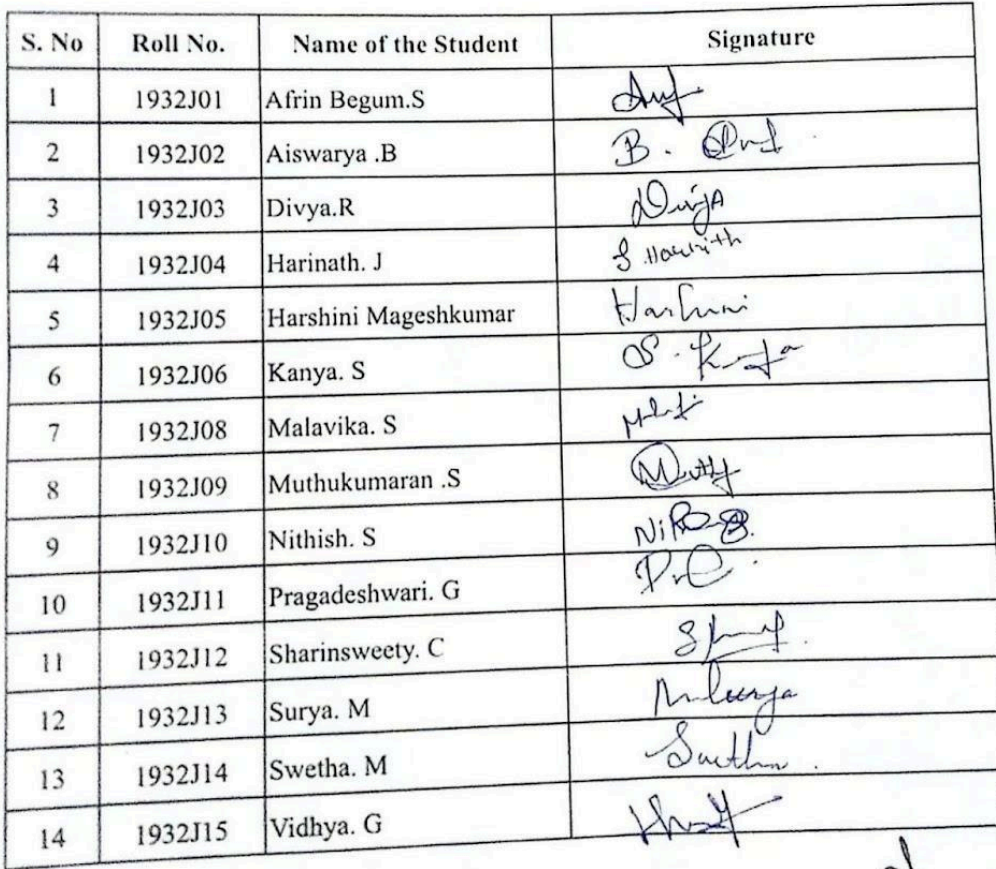 S. No Roll No. Name of the Student Signature
1 1932J01 Afrin Begum.S
2 1932J02 Aiswarya .B B.
3 1932J03 Divya.R Divya
4 1932J04 Harinath. J
5 1932J05 Harshini Mageshkumar Harshini
6 1932J06 Kanya. S S.
7 1932J08 Malavika. S
8 1932J09 Muthukumaran .S
9 1932J10 Nithish. S
10 1932J11 Pragadeshwari. G
11 1932J12 Sharinsweety. C
12 1932J13 Surya. M
13 1932J14 Swetha. M
14 1932J15 Vidhya. G